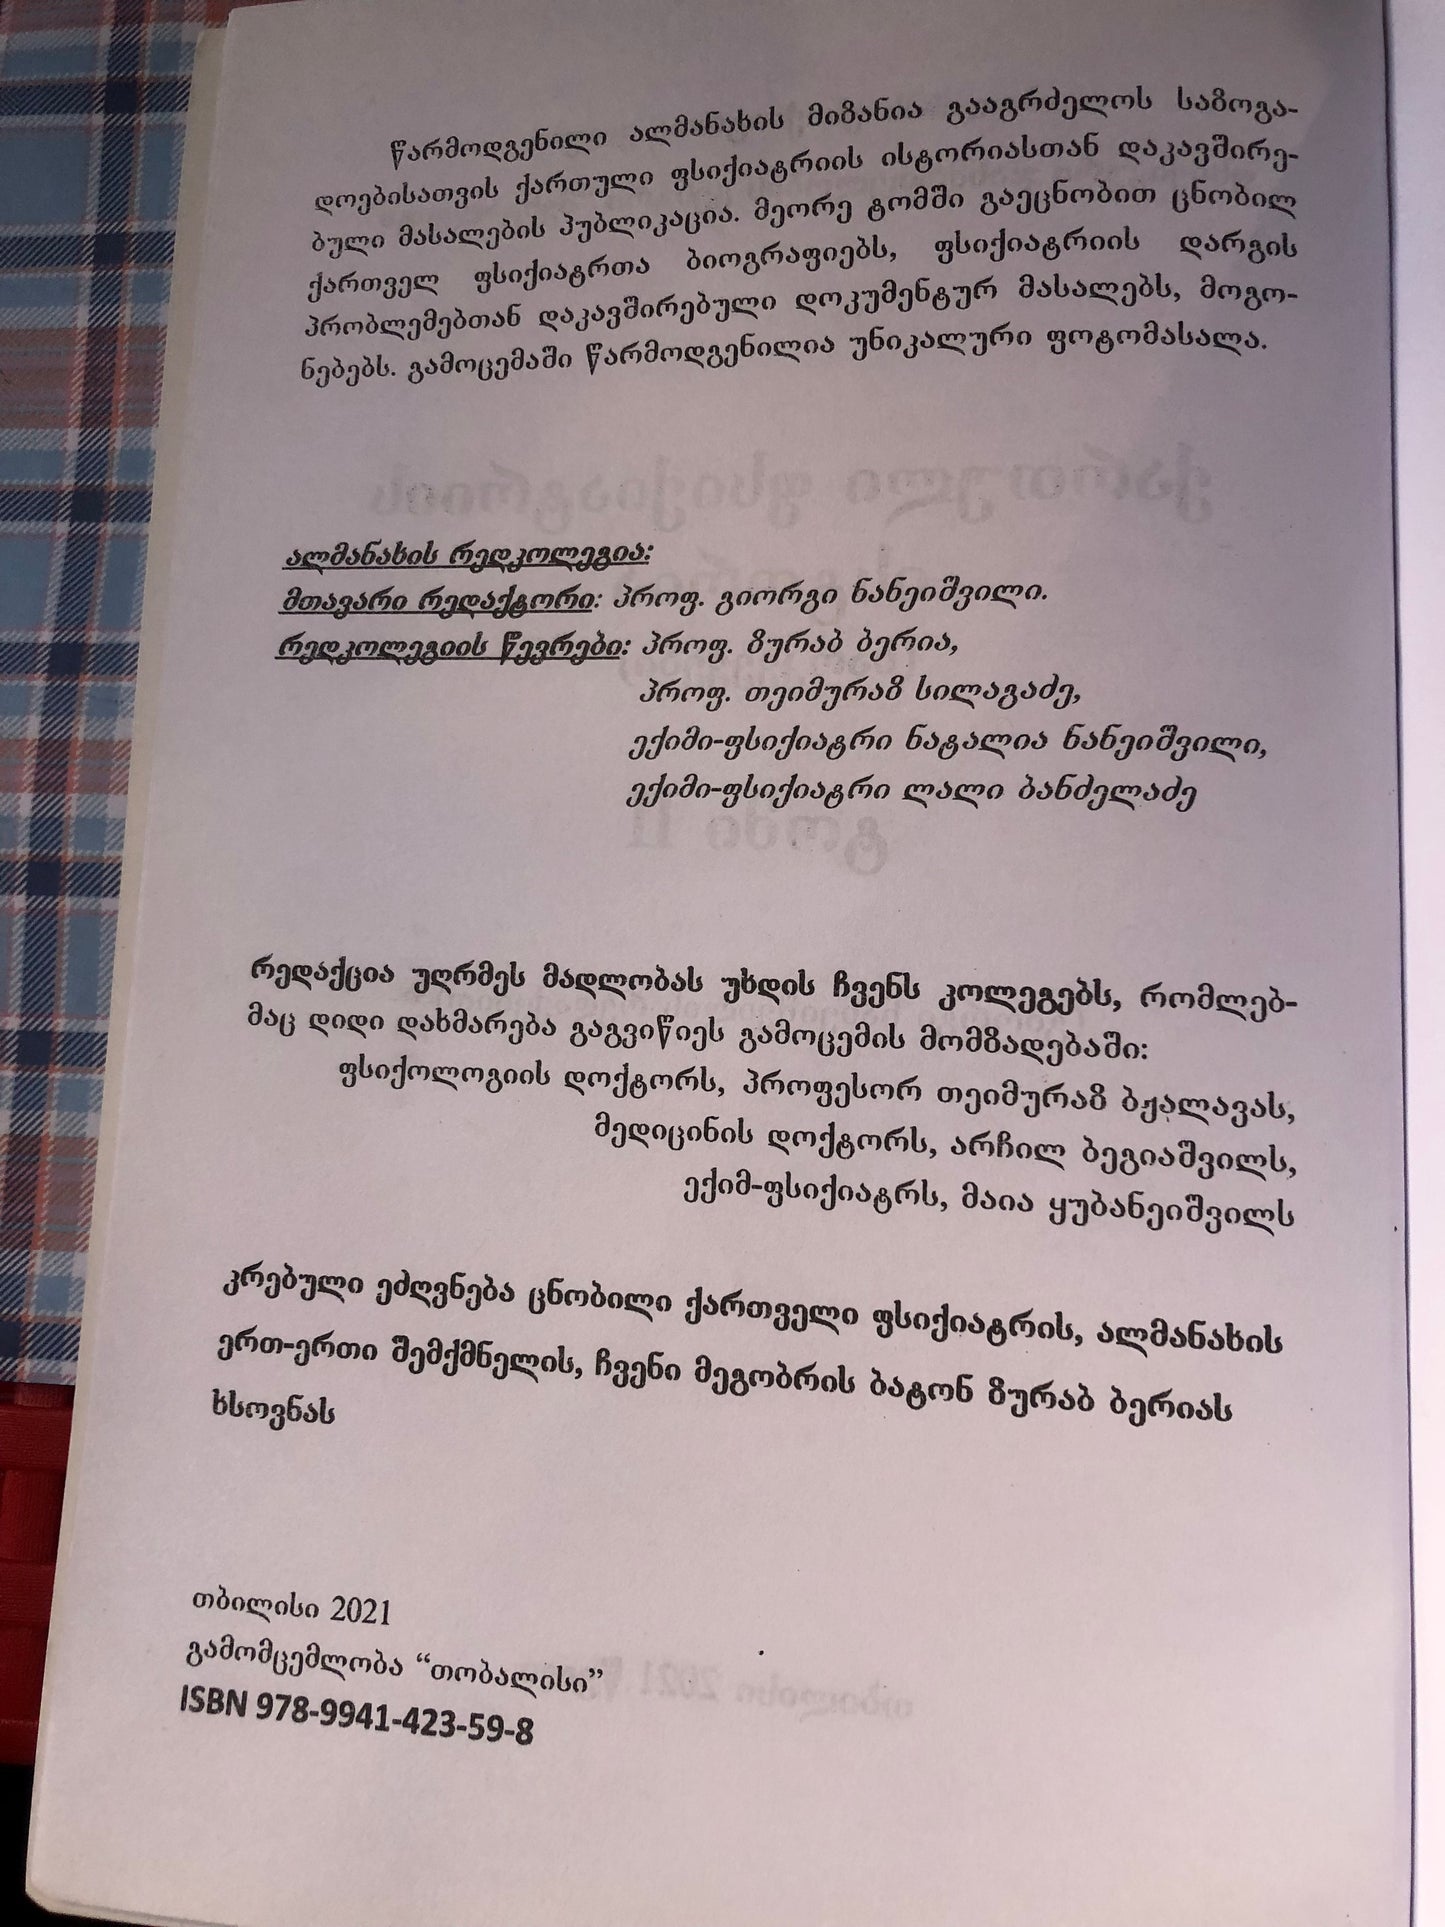 წარმოდგენილი ალმანახის მიზანია გააგრძელოს საზოგა-
დოებისათვის ქართული ფსიქიატრიის ისტორიასთან დაკავშირე-
ბული მასალების პუბლიკაცია. მეორე ტომში გაეცნობით ცნობილ
ქართველ ფსიქიატრთა ბიოგრაფიებს, ფსიქიატრიის დარგის
პრობლემებთან დაკავშირებული დოკუმენტურ მასალებს, მოგო-
ნებებს. გამოცემაში წარმოდგენილია უნიკალური ფოტომასალა.
ალმანახის რედკოლეგია:
მთავარი რედაქტორი: პროფ. გიორგი ნანეიშვილი.
რედკოლეგიის წევრები: პროფ. ზურაბ ბერია,
პროფ. თეიმურაზ სილაგაძე,
ექიმი-ფსიქიატრი ნატალია ნანეიშვილი,
ექიმი-ფსიქიატრი ლალი ბანძელაძე
რედაქცია უღრმეს მადლობას უხდის ჩვენს კოლეგებს, რომლებ-
მაც დიდი დახმარება გაგვიწიეს გამოცემის მომზადებაში:
ფსიქოლოგიის დოქტორს, პროფესორ თეიმურაზ ბჟალავას,
მედიცინის დოქტორს, არჩილ ბეგიაშვილს,
ექიმ-ფსიქიატრს, მაია ყუბანეიშვილს
კრებული ეძღვნება ცნობილი ქართველი ფსიქიატრის, ალმანახის
ერთ-ერთი შემქმნელის, ჩვენი მეგობრის ბატონ ზურაბ ბერიას
ხსოვნას
თბილისი 2021
გამომცემლობა “თობალისი”
ISBN 978-9941-423-59-8